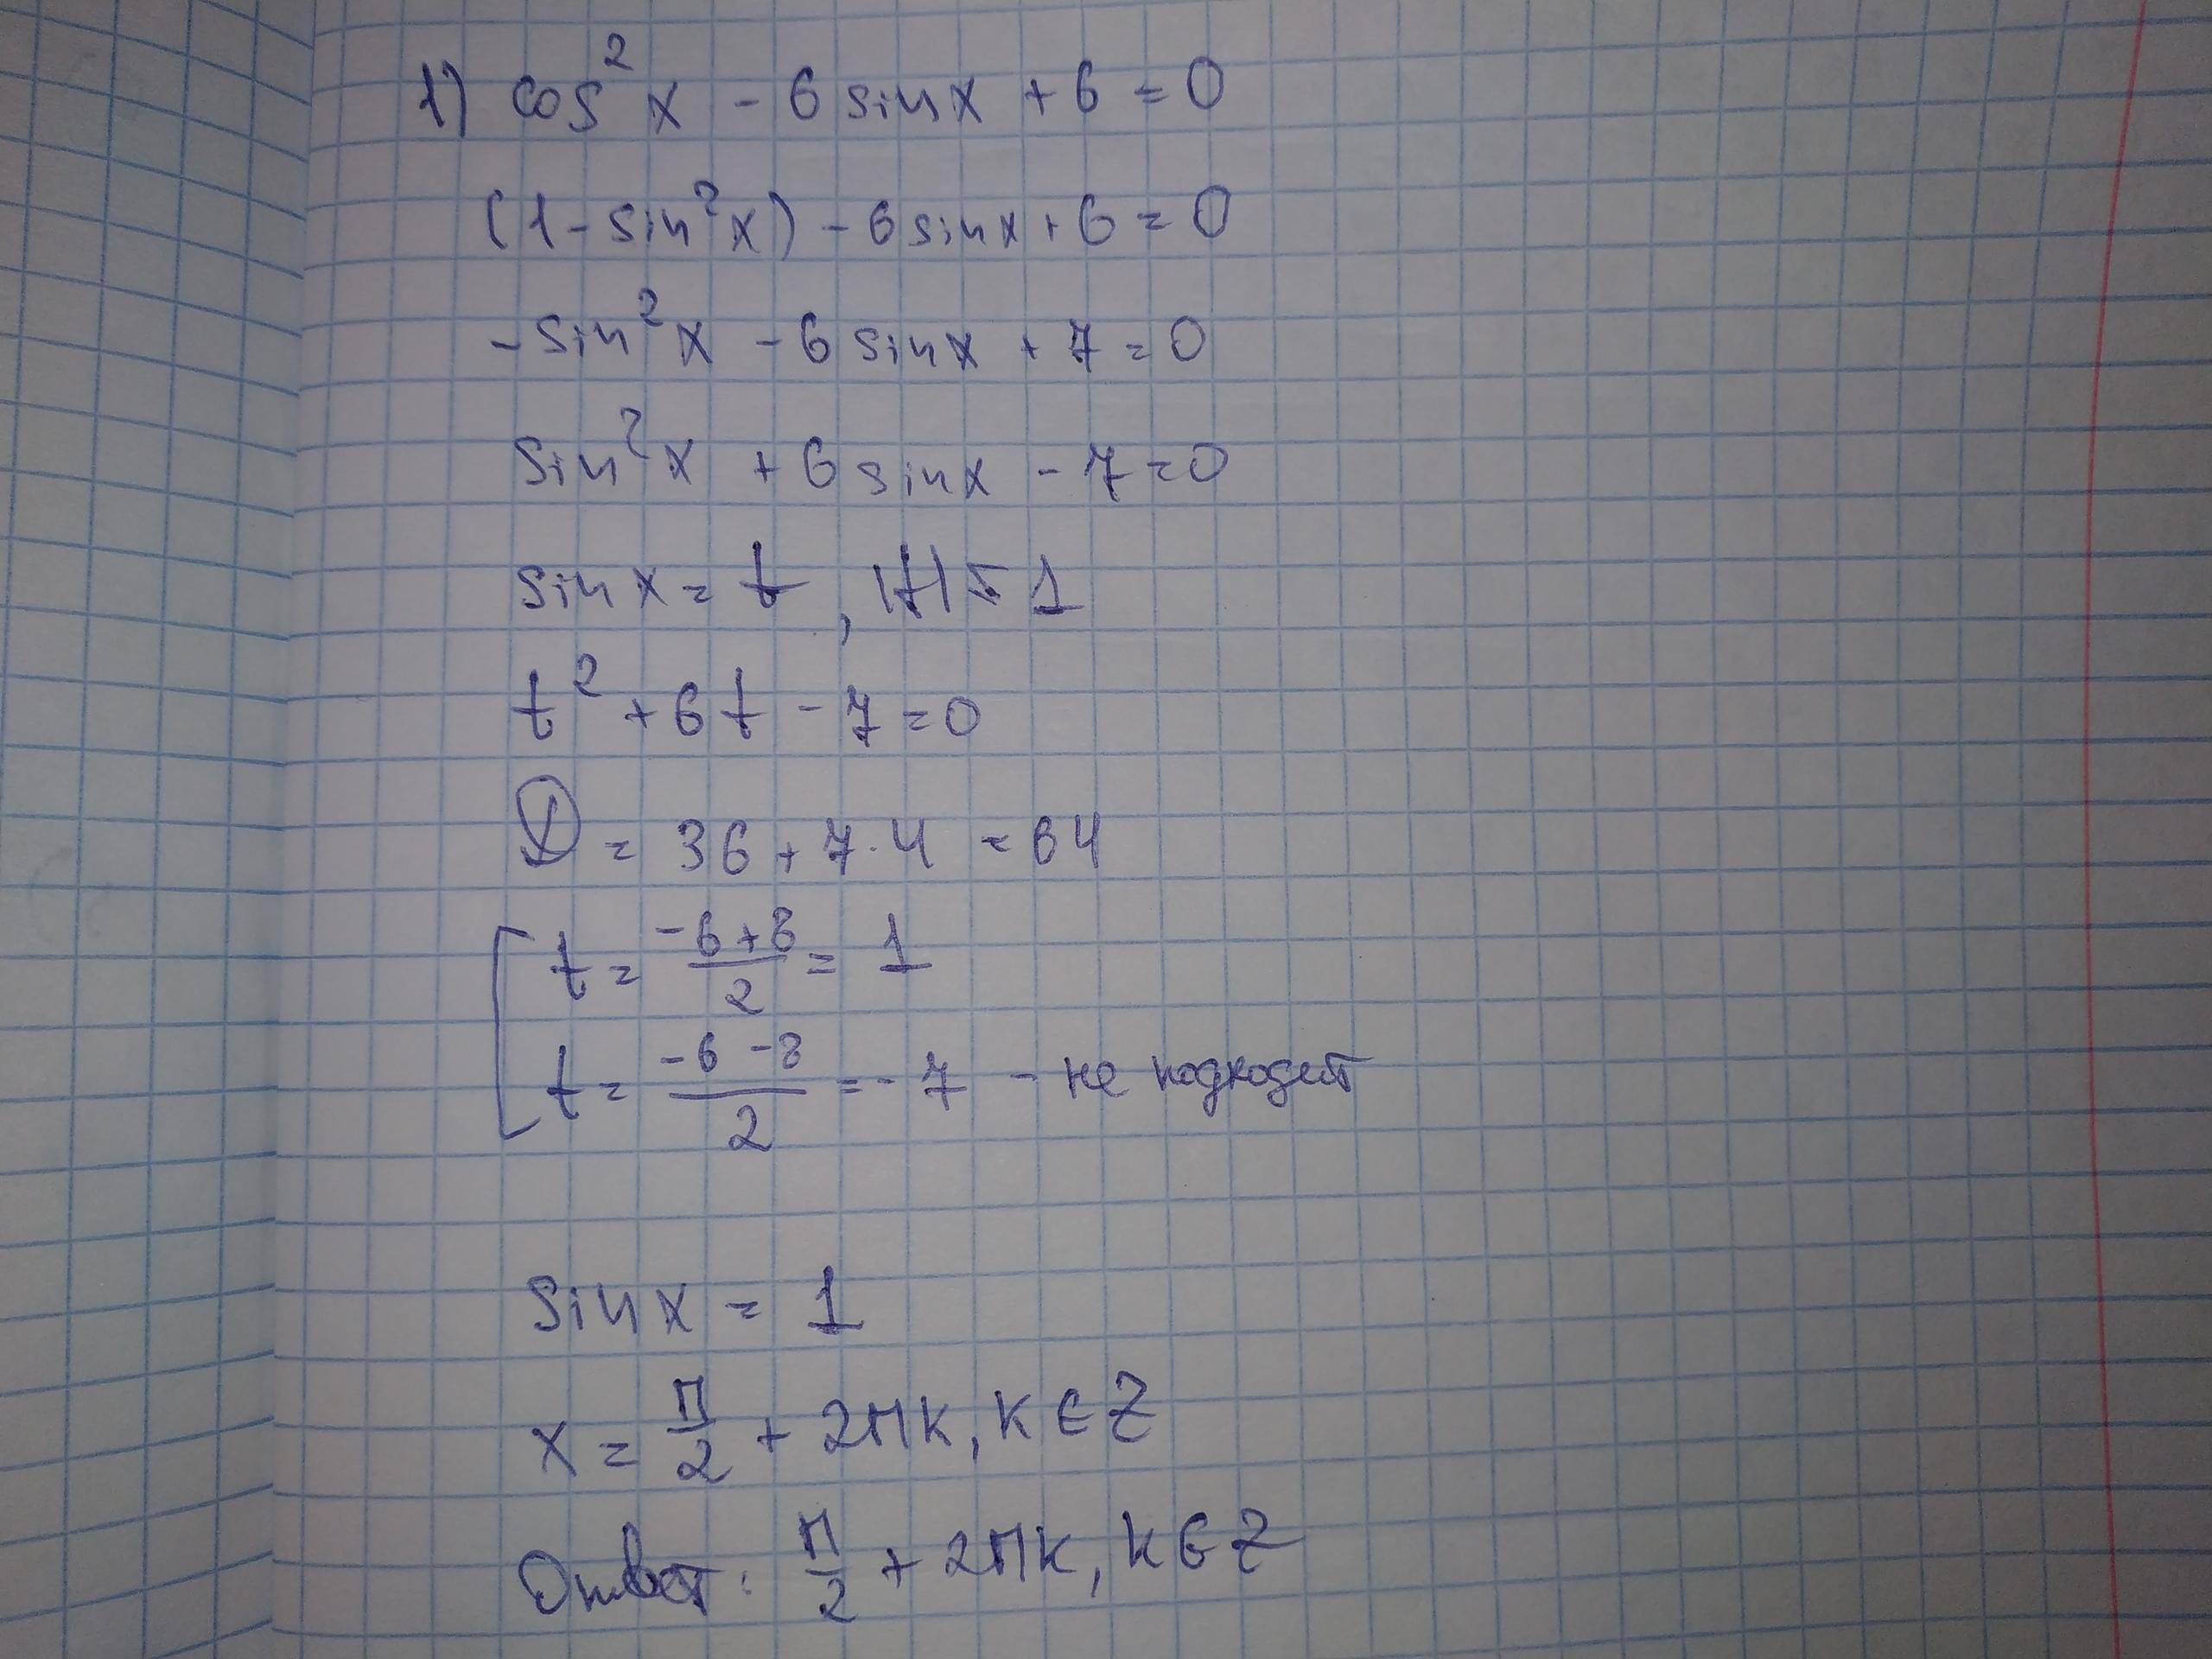 1) cos²x - 6 sinx + 6 = 0
(1 - sin²x) - 6 sinx + 6 = 0
-sin²x - 6 sinx + 7 = 0
sin²x + 6 sinx - 7 = 0
sin x = t, |t| ≤ 1
t² + 6t - 7 = 0
D = 36 + 7·4 = 64
t = (-6+8)/2 = 1
t = (-6-8)/2 = -7 - не подходит
sin x = 1
x = π/2 + 2πk, k ∈ Z
Ответ: π/2 + 2πk, k ∈ Z